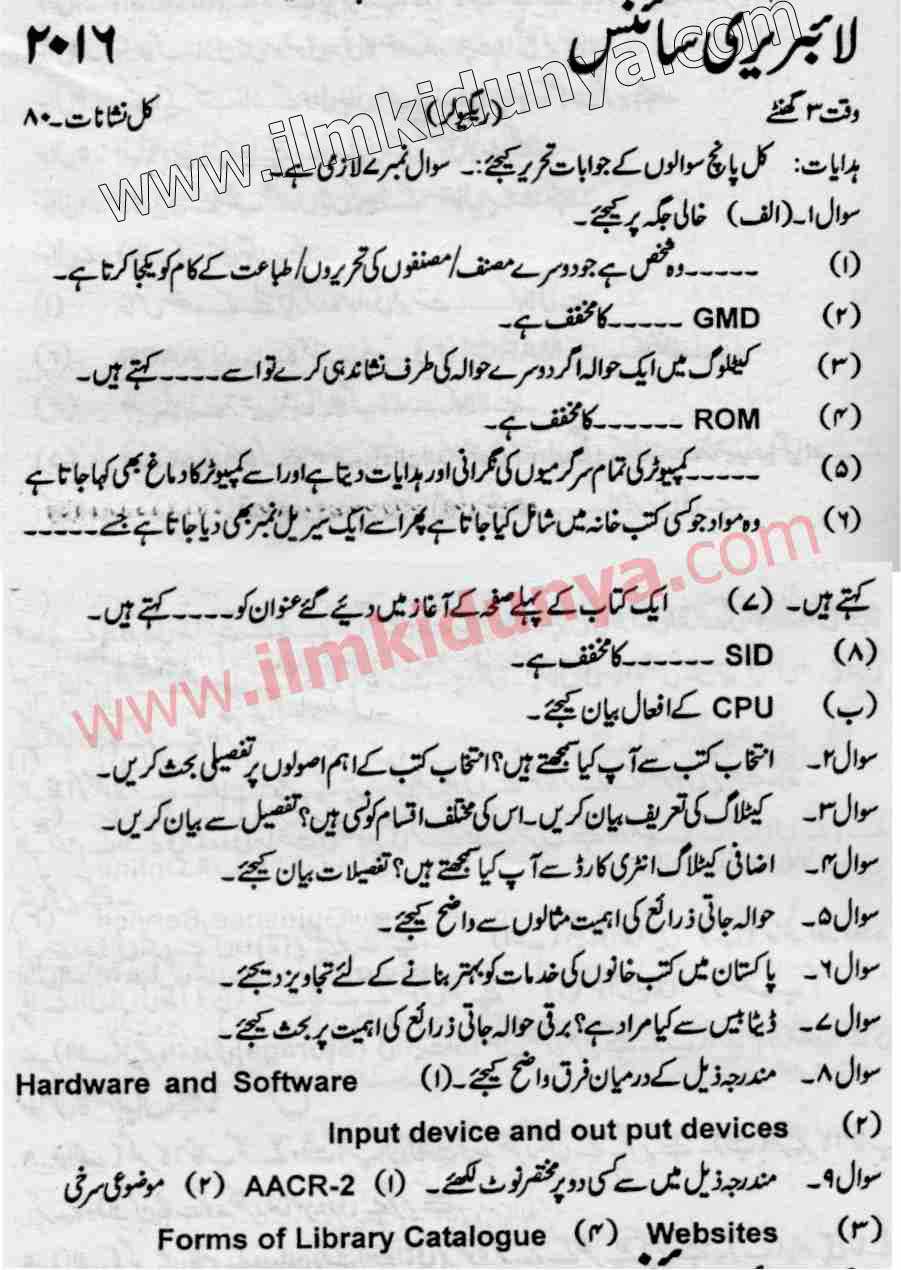 لائبریری سائنس ۲۰۱۶
www.ilmkidunya.com
وقت ۳ گھنٹے (ریگولر) کل نشانات۔ ۸۰
ہدایات: کل پانچ سوالوں کے جوابات تحریر کیجئے:۔ سوال نمبر ۷ لازمی ہے۔
سوال ۱۔(الف) خالی جگہ پر کیجئے۔
(۱) ۔۔۔۔۔ وہ شخص ہے جو دوسرے مصنف/مصنفوں کی تحریروں/طباعت کے کام کو یکجا کرتا ہے۔
(۲) GMD ۔۔۔۔۔ کا مخفف ہے۔
(۳) کیٹلوگ میں ایک حوالہ اگر دوسرے حوالہ کی طرف نشاندہی کرے تو اسے ۔۔۔۔ کہتے ہیں۔
(۴) ROM ۔۔۔۔۔۔ کا مخفف ہے۔
(۵) ۔۔۔۔۔ کمپیوٹر کی تمام سرگرمیوں کی نگرانی اور ہدایات دیتا ہے اور اسے کمپیوٹر کا دماغ بھی کہا جاتا ہے
(۶) وہ مواد جو کسی کتب خانہ میں شائل کیا جاتا ہے پھر اسے ایک سیریل نمبر بھی دیا جاتا ہے جسے ۔۔۔۔۔
کہتے ہیں۔ (۷) ایک کتاب کے پہلے صفحہ کے آغاز میں دیئے گئے عنوان کو ۔۔۔۔ کہتے ہیں۔
www.ilmkidunya.com
(۸) SID ۔۔۔۔۔۔ کا مخفف ہے۔
(ب) CPU کے افعال بیان کیجئے۔
سوال ۲۔ انتخاب کتب سے آپ کیا سمجھتے ہیں؟ انتخاب کتب کے اہم اصولوں پر تفصیلی بحث کریں۔
سوال ۳۔ کیٹلاگ کی تعریف بیان کریں۔ اس کی مختلف اقسام کونسی ہیں؟ تفصیل سے بیان کریں۔
سوال ۴۔ اضافی کیٹلاگ انٹری کارڈ سے آپ کیا سمجھتے ہیں؟ تفصیلات بیان کیجئے۔
سوال ۵۔ حوالہ جاتی ذرائع کی اہمیت مثالوں سے واضح کیجئے۔
سوال ۶۔ پاکستان میں کتب خانوں کی خدمات کو بہتر بنانے کے لئے تجاویز دیجئے۔
سوال ۷۔ ڈیٹا بیس سے کیا مراد ہے؟ برقی حوالہ جاتی ذرائع کی اہمیت پر بحث کیجئے۔
سوال ۸۔ مندرجہ ذیل کے درمیان فرق واضح کیجئے۔ (۱) Hardware and Software
(۲) Input device and out put devices
سوال ۹۔ مندرجہ ذیل میں سے کسی دو پر مختصر نوٹ لکھئے۔ (۱) AACR-2 (۲) موضوعی سرخی
(۳) Websites (۴) Forms of Library Catalogue